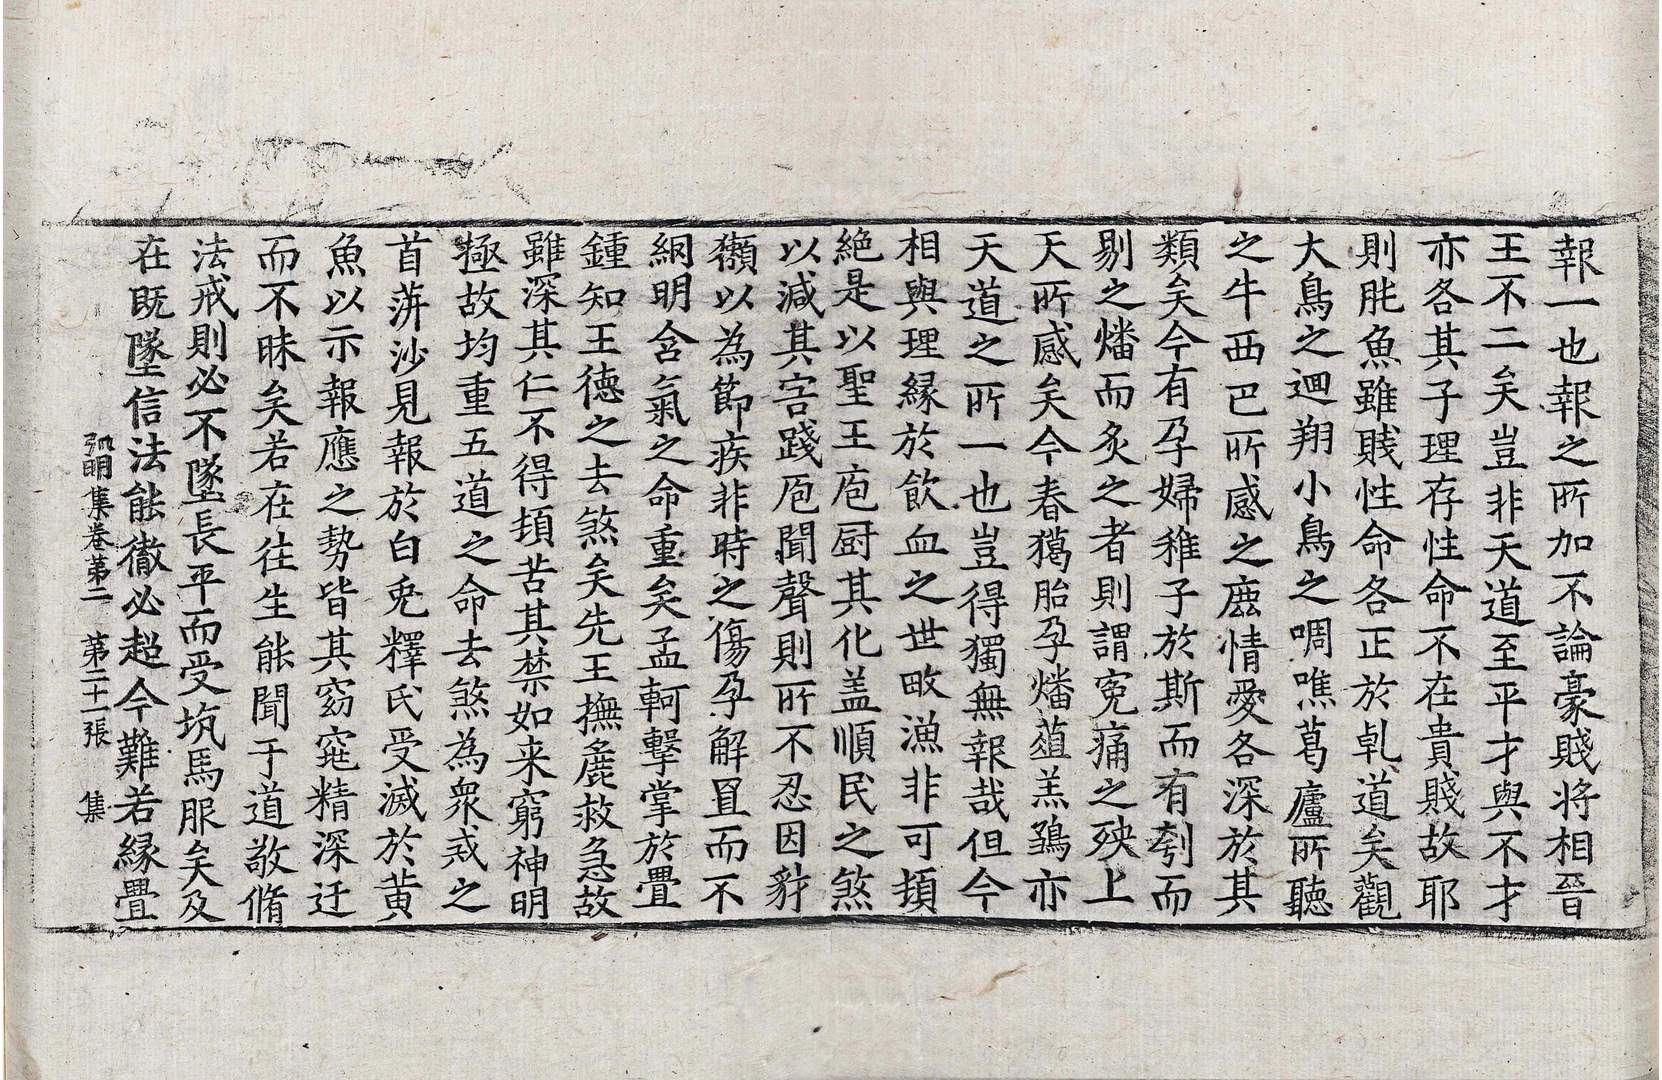 報一也報之所加不論豪賤將相晉
王不二矣豈非天道至平才與不才
亦各其子理存性命不在貴賤故耶
則肫魚雖賎性命各正於乹道矣觀
大鳥之迴翔小鳥之啁噍葛廬所聽
之牛西巴所感之麑情愛各深於其
類矣今有孕婦稚子於斯而有刳而
剔之燔而炙之者則謂寃痛之殃上
天所感矣今春獦胎孕燔葅羔鷄亦
天道之所一也豈得獨無報哉但今
相與理縁於飲血之世畋漁非可頓
絶是以聖王庖厨其化盖順民之煞
以減其害踐庖聞聲則所不忍因豺
獺以為節疾非時之傷孕解罝而不
綱明含氣之命重矣孟軻擊掌於疊
鍾知王德之去煞矣先王撫麁救急故
雖深其仁不得頓苦其禁如来窮神明
極故均重五道之命去煞為衆戒之
首蓱沙見報於白兎釋氏受滅於黄
魚以示報應之勢皆其窈窕精深迂
而不昧矣若在往生能聞于道敬脩
法戒則必不墜長平而受坑馬服矣及
在既墜信法能徹必超今難若縁疊
弘明集卷第二　第二十一張　集